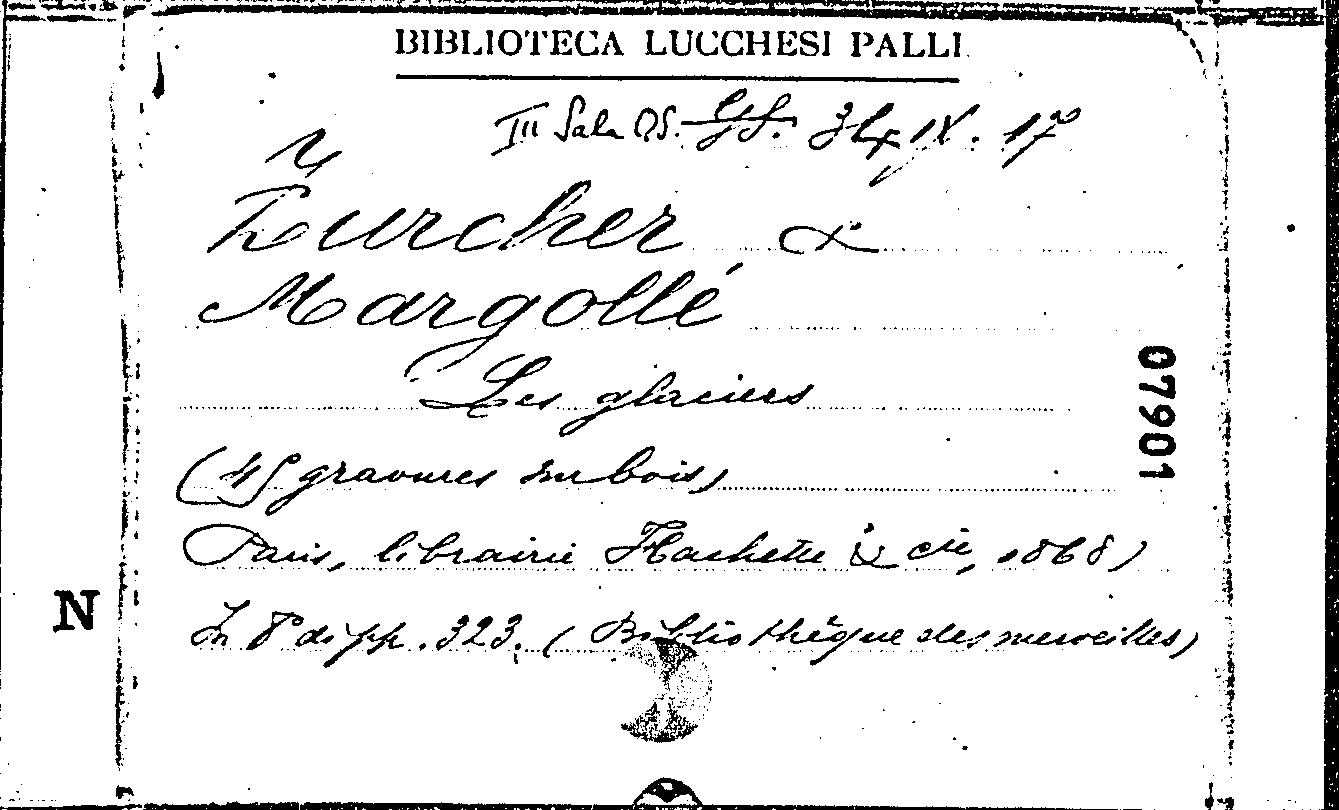 BIBLIOTECA LUCCHESI PALLI
III Sala QS. 34 IX. 17
Zürcher &
Margollé
Les glaciers
(45 gravures sur bois)
07901
Paris, librairie Hachette & cie, 1868)
N
In 8° di pp. 323. (Bibliothèque des merveilles)